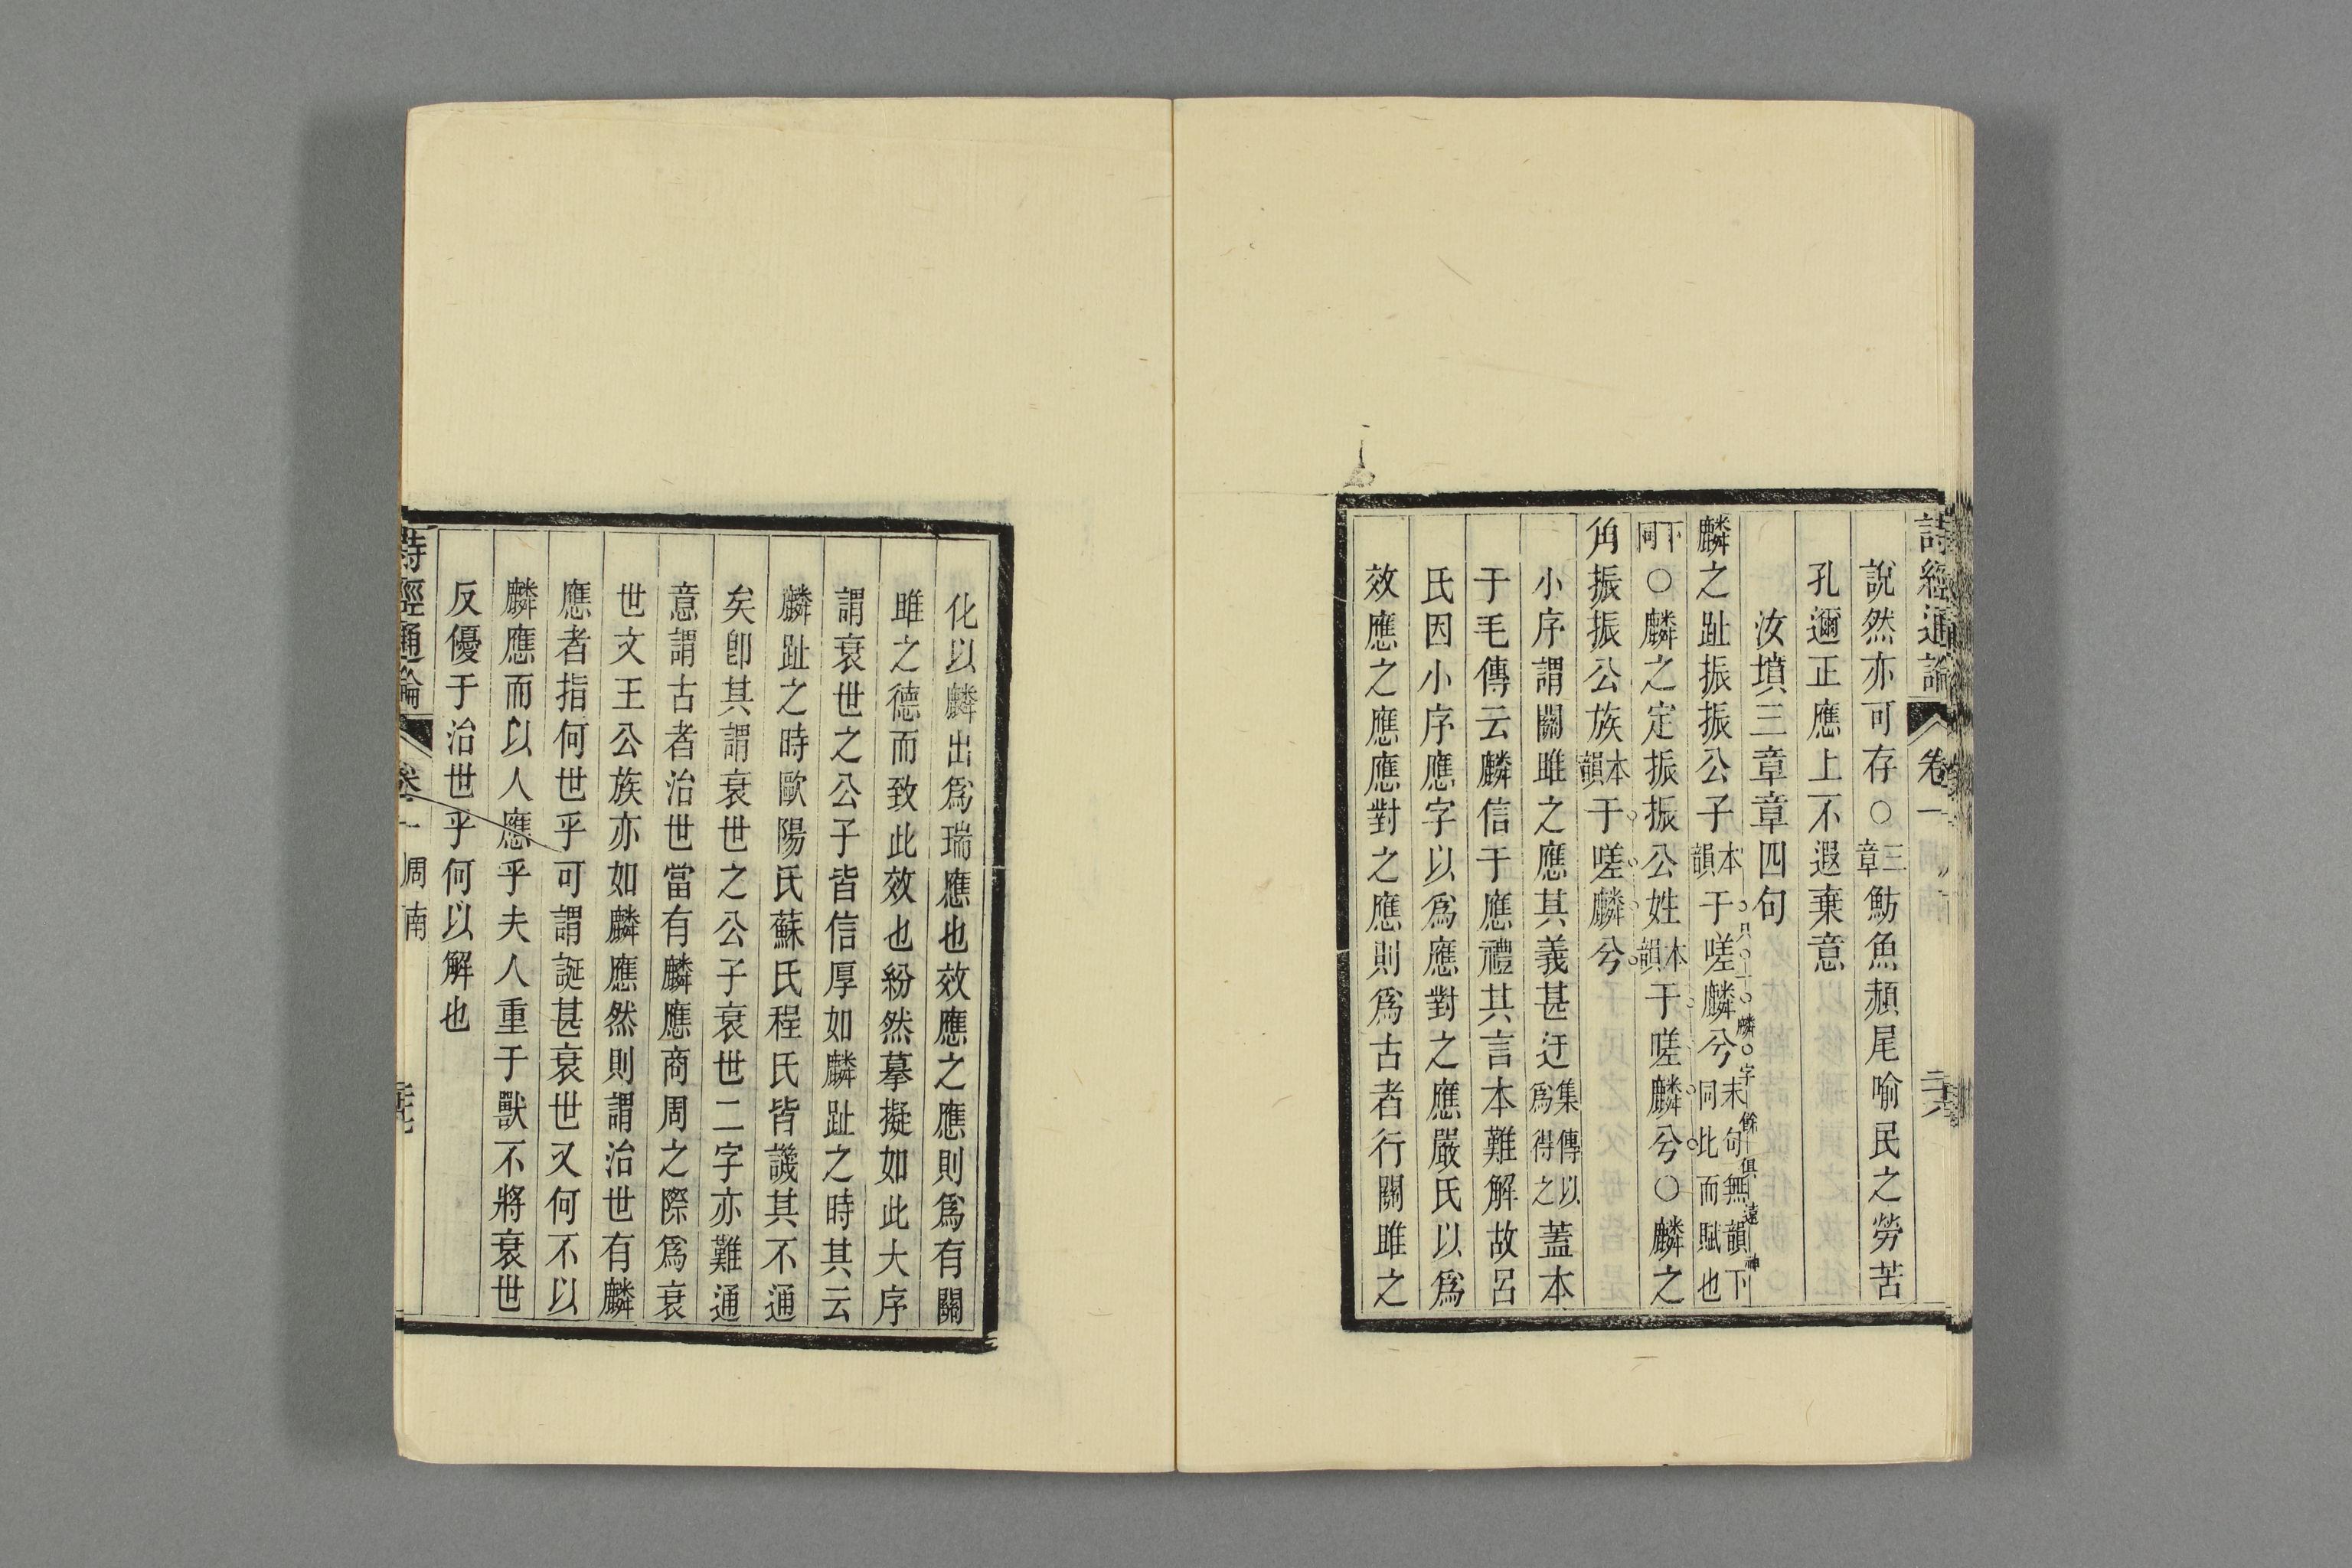 詩經通論 卷一
說然亦可存○三章魴魚頳尾喻民之勞苦
孔邇正應上不遐棄意
汝墳三章章四句
麟之趾振振公子本韻于嗟麟兮末句無韻下同此而賦也
只一麟字餘俱遠神
下同○麟之定振振公姓本韻于嗟麟兮○麟之
角振振公族本韻于嗟麟兮
小序謂關雎之應其義甚迂集傳以爲得之蓋本
于毛傳云麟信于應禮其言本難解故呂
氏因小序應字以爲應對之應嚴氏以爲
效應之應應對之應則爲古者行關雎之
化以麟出爲瑞應也效應之應則爲有關
雎之德而致此效也紛然摹擬如此大序
謂衰世之公子皆信厚如麟趾之時其云
麟趾之時歐陽氏蘇氏程氏皆譏其不通
矣卽其謂衰世之公子衰世二字亦難通
意謂古者治世當有麟應商周之際爲衰
世文王公族亦如麟應然則謂治世有麟
應者指何世乎可謂誕甚衰世又何不以
麟應而以人應乎夫人重于獸不將衰世
反優于治世乎何以解也
詩經通論 卷一 周南